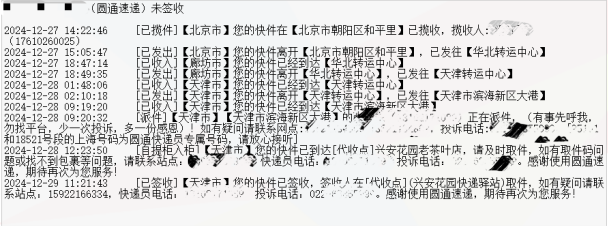 (圆通速递) 未签收
2024-12-27 14:22:46 [已揽件]【北京市】您的快件在【北京市朝阳区和平里】已揽收，揽收人:
(17610260025)
2024-12-27 15:05:47 [已发出]【北京市】您的快件离开【北京市朝阳区和平里】，已发往【华北转运中心】
2024-12-27 18:47:14 [已收入]【廊坊市】您的快件已经到达【华北转运中心】
2024-12-27 18:49:35 [已发出]【廊坊市】您的快件离开【华北转运中心】，已发往【天津转运中心】
2024-12-28 01:48:06 [已收入]【天津市】您的快件已经到达【天津转运中心】
2024-12-28 02:10:18 [已发出]【天津市】您的快件离开【天津转运中心】，已发往【天津市滨海新区大港】
2024-12-28 09:19:20 [已收入]【天津市】您的快件已经到达【天津市滨海新区大港】
2024-12-28 09:20:32 [派件]【天津市】【天津市滨海新区大港】的 正在派件，（有事先呼我，
勿找平台，少一次投诉，多一份感恩）！如有疑问请联系网点: 投诉电话:
和18521号段的上海号码为圆通快递员专属号码，请放心接听]
2024-12-28 12:23:50 [自提柜入柜]【天津市】您的快件已到达[代收点]兴安花园老茶叶店，请及时取件，如有取件码问
题或找不到包裹等问题，请联系站点: 快递员电话: 投诉电话: 。感谢使用圆通速
递，期待再次为您服务!
2024-12-29 11:21:43 [已签收]【天津市】您的快件已签收，签收人在[代收点](兴安花园快递驿站)取件，如有疑问请联
系站点: 15922166334，快递员电话: 投诉电话: 022 。感谢使用圆通速递，期待再次为您服务!